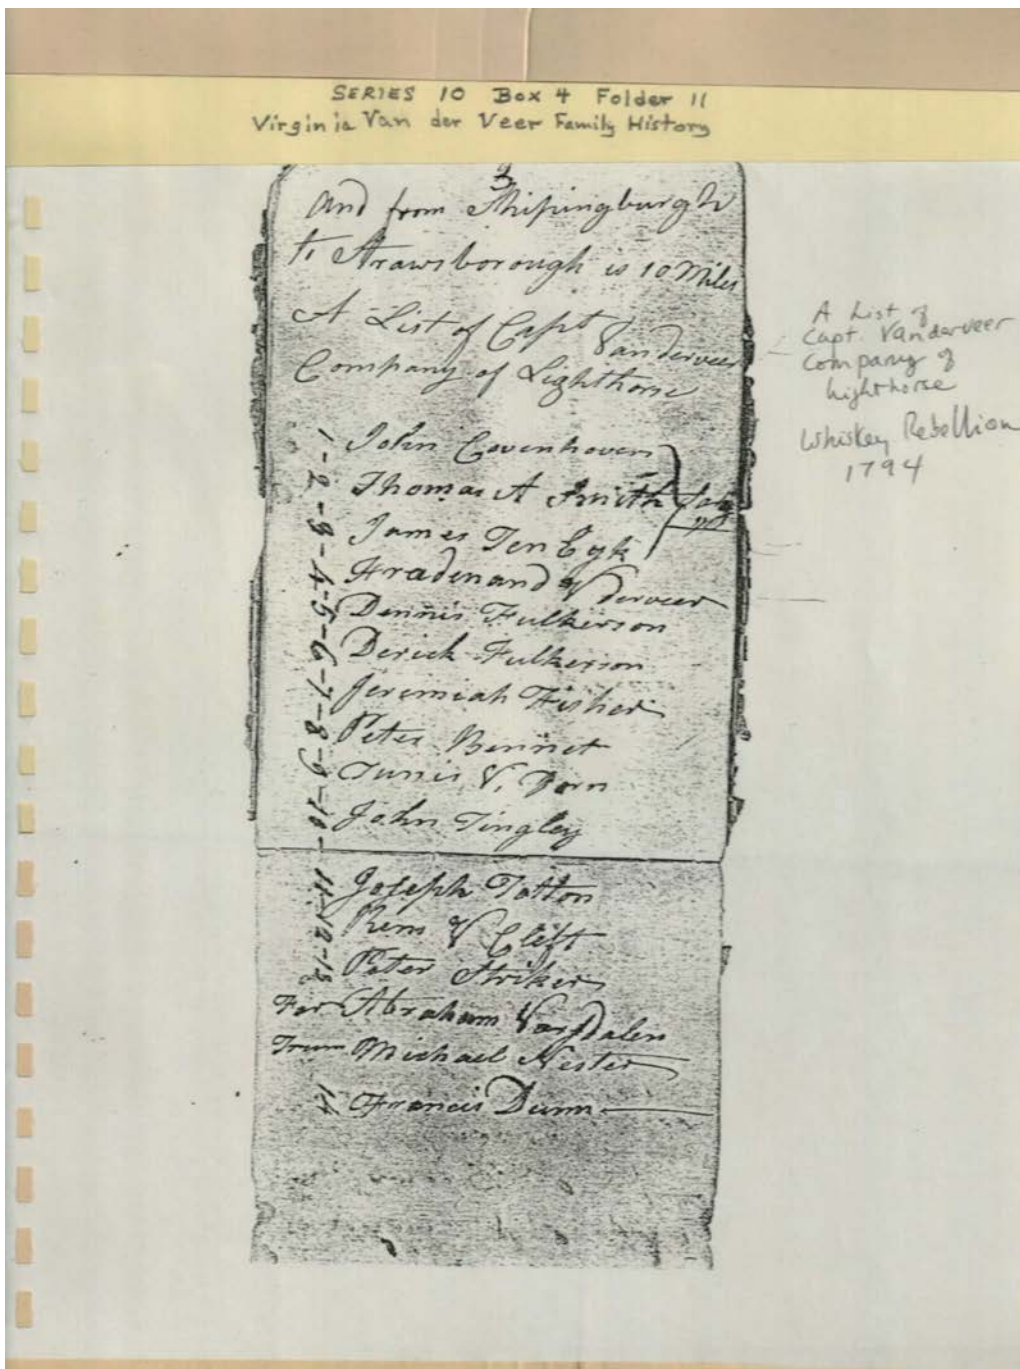 SERIES 10 Box 4 Folder 11
Virginia Van der Veer Family History
3
and from Shipingburgh
to Strawsborough is 10 Miles
A List of Capt Vanderveer
Company of Lighthorse
1 - John Covenhoven
2 - Thomas A Smith
3 - James Ten Eyk
4 - Fradenand Vderveer
5 - Dennis Fulkerson
6 - Derick Fulkerson
7 - Jeremiah Fisher
8 - Peter Bennet
9 - Tunis V. Dorn
10 - John Tingley
11 - Joseph Totton
12 - Rem V Cleft
13 Peter Striker
Far Abraham Vansdalen
Trum Michael Nester
14 Francis Dunn
A List of
Capt. Vanderveer
Company of
lighthorse
Whiskey Rebellion
1794